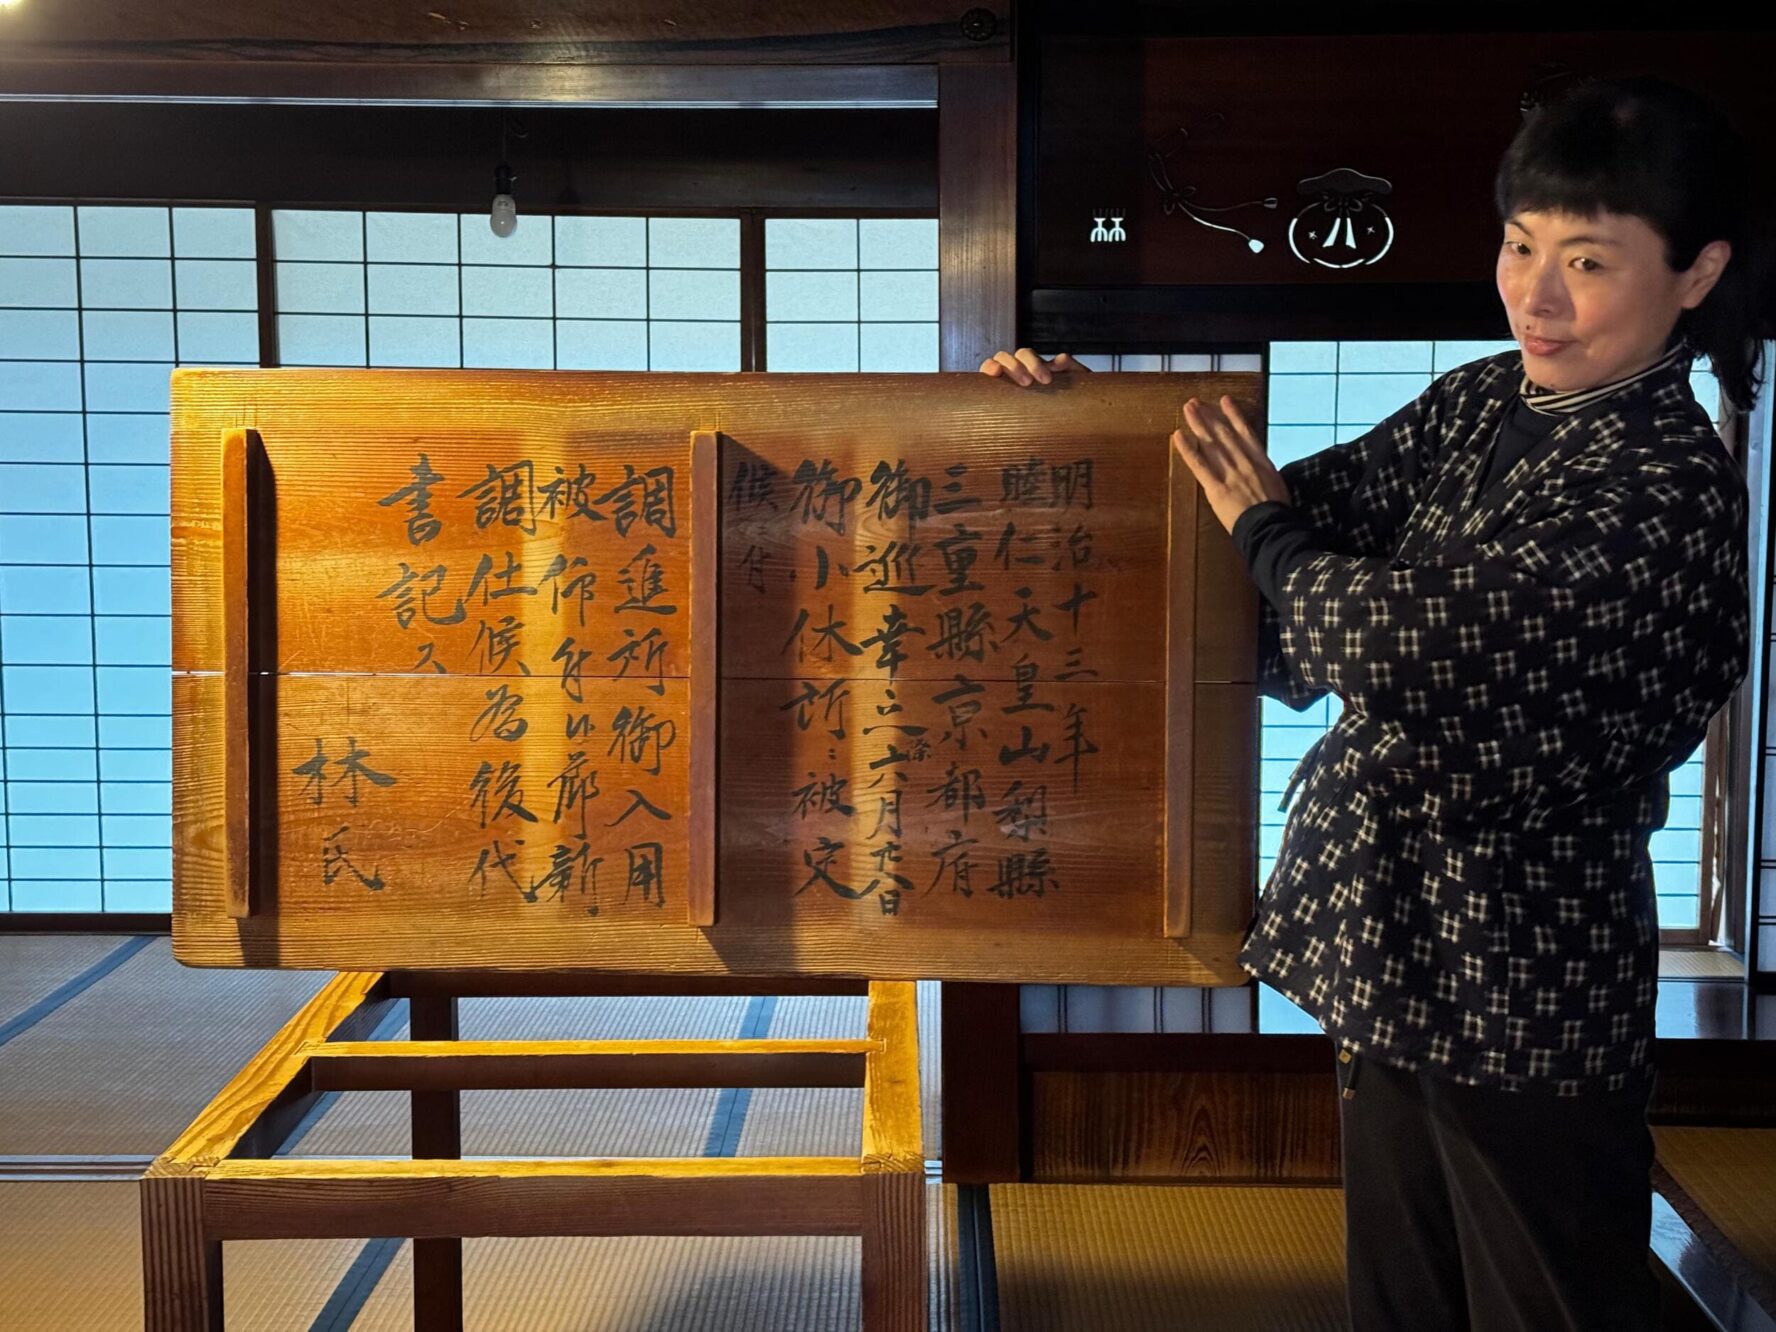 明治十三年
睦仁天皇山梨縣
三重縣京都府
御巡幸之際六月廿八日
御小休所ニ被定
候ニ付
調進所御入用
被仰付候節新
調仕候為後代
書記ス
林氏